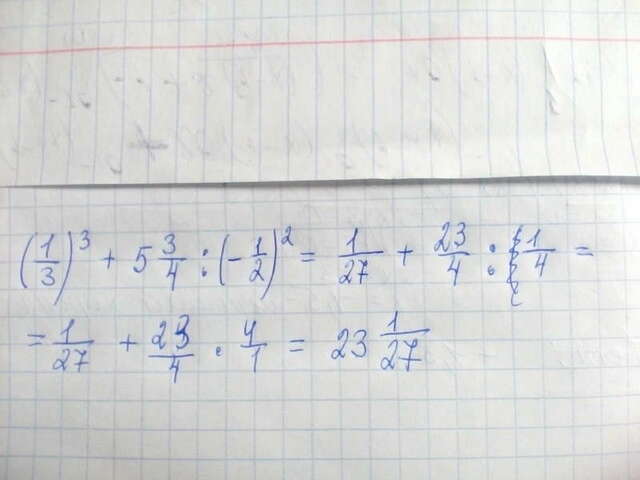 (1/3)³ + 5 3/4 : (-1/2)² = 1/27 + 23/4 : 1/4 =
= 1/27 + 23/4 · 4/1 = 23 1/27